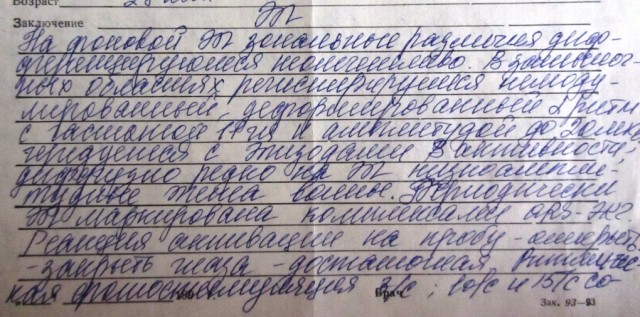 Возраст
Заключение ЭГ
На фоновой ЭГ зональные различия диф-
ференцируются неотчетливо. В затылоч-
ных областях регистрируется немоду-
лированный, деформированный α ритм
с частотой и амплитудой до 20 мкв
чередуется с эпизодами β активности,
диффузно редко на ЭГ низкоампли-
тудные тета волны. Периодически
ЭГ маркирована комплексами QRS-ЭКГ.
Реакция активации на пробу - открыть
- закрыть глаза - достаточная. Ритмичес-
кая фотостимуляция 8/с; 10/с и 15/с со-
Врач
Зак. 93—93